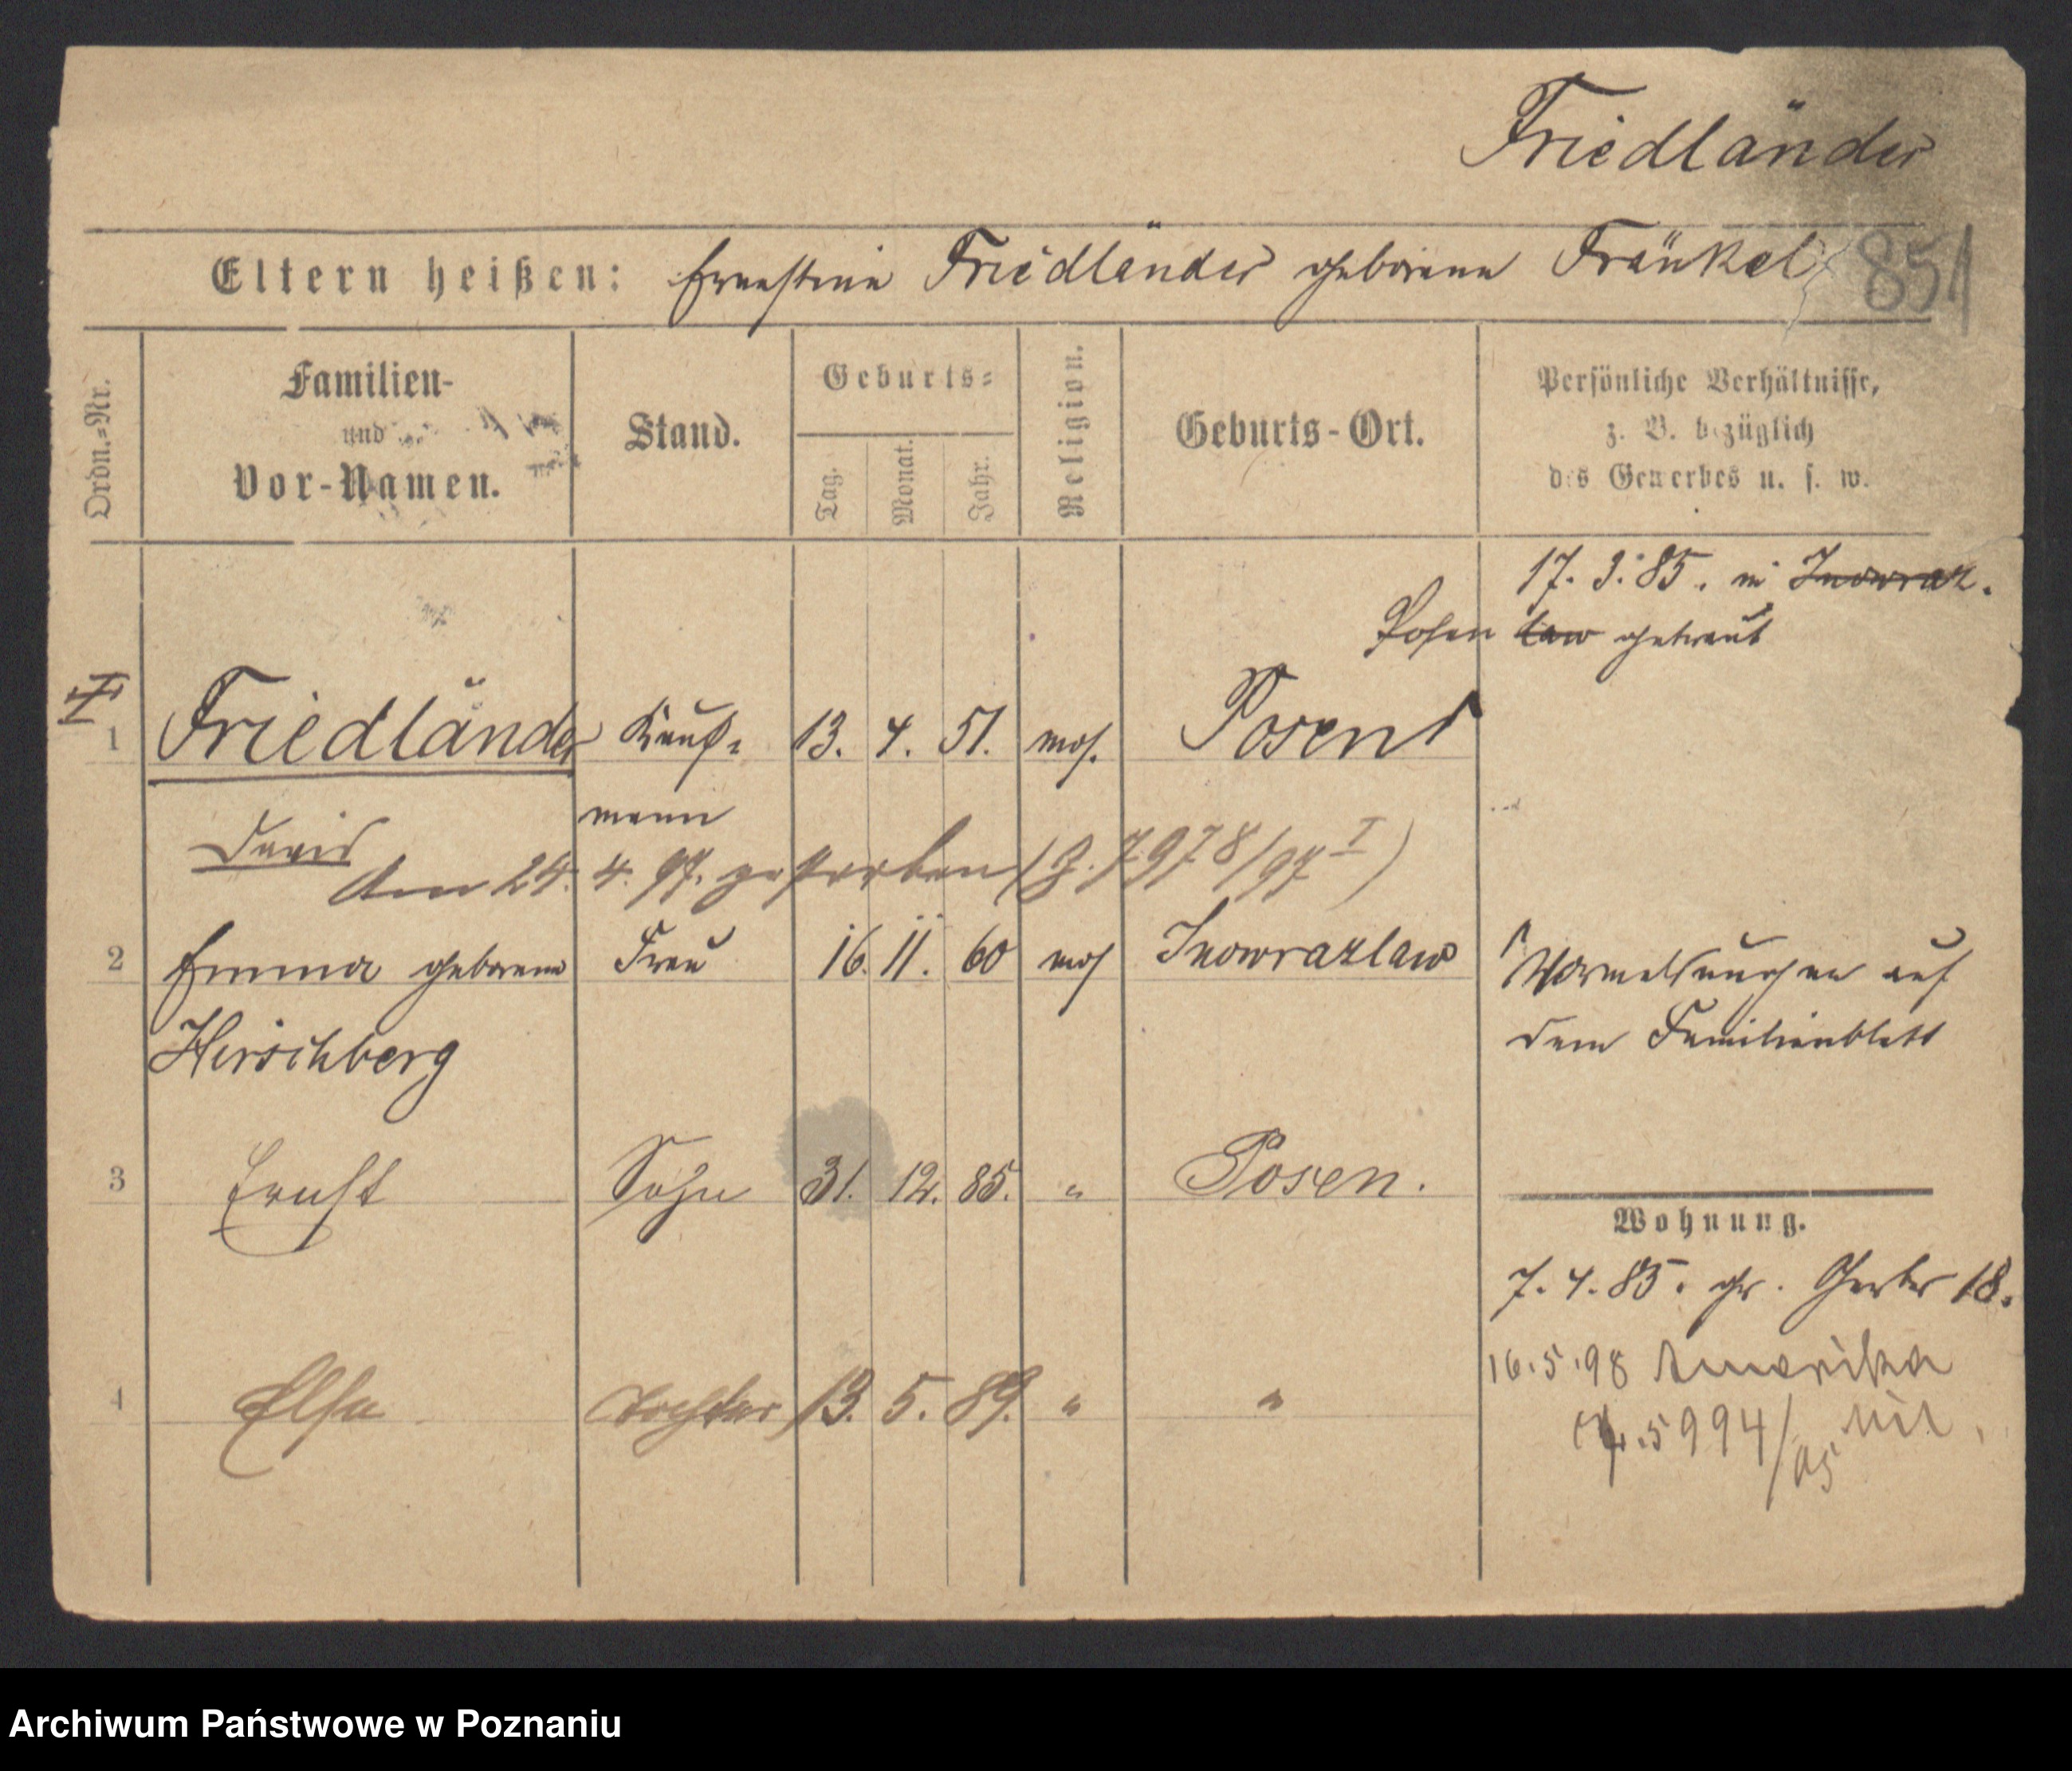 Friedländer
Eltern heißen: Ernestine Friedländer geborene Fränkel 851
Ordn.=Nr. Familien- und Vor-Namen. Stand. Geburts= Tag. Monat. Jahr. Religion. Geburts-Ort. Persönliche Verhältnisse, z. B. bezüglich des Gewerbes u. s. w.
17. 3. 85. in Inowraz.
Posen law getraut
I
1 Friedländer Kauf= 13. 4. 51. mos. Posen 1
David mann
Am 24. 4. 97. gestorben (J. 7978/97 I)
2 Emma geborene Frau 16. 11. 60 mos Inowrazlaw
Hirschberg
1 Vormeldungen auf
dem Familienblatt
3 Ernst Sohn 31. 12. 85. " Posen.
Wohnung.
7. 4. 85. gr. Gerber 18.
16.5.98 Amerika
4 Elsa Tochter 13. 5. 89. " "
5994/05
Archiwum Państwowe w Poznaniu